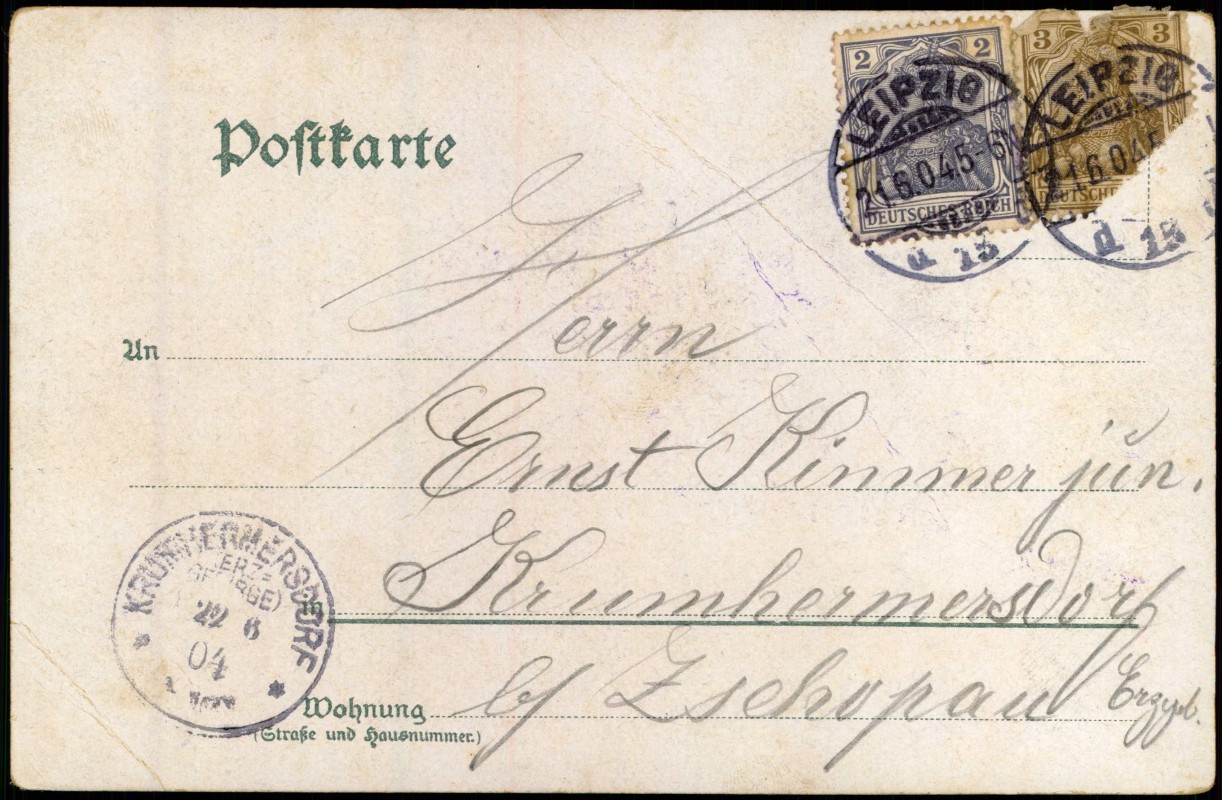 2 2
3 3
LEIPZIG
21.6.04.5-6N
d 13
DEUTSCHES REICH
LEIPZIG
21.6.04.5
d 13
DEUTSCHE
Postkarte
Herrn
An
Ernst Kimmer jun.
Krumhermersdorf
KRUMHERMERSDORF
(ERZ-
GEBIRGE)
22 6
04
b/ Zschopau Erzgeb.
Wohnung
(Straße und Hausnummer.)